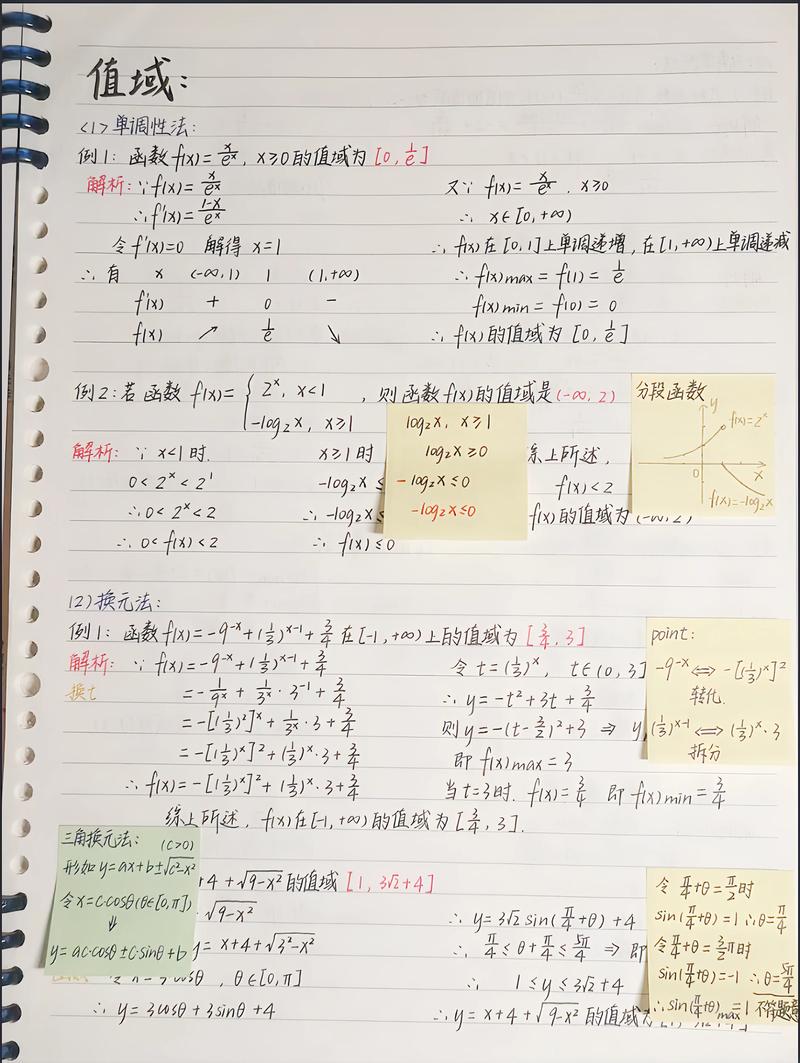 值域:
<1>单调性法:
例1: 函数f(x)=x/eˣ, x≥0的值域为[0, 1/e]
解析: ∵f(x)=x/eˣ
∴f'(x)=(1-x)/eˣ
令f'(x)=0 解得x=1
∴有 x (-∞,1) 1 (1,+∞)
f'(x) + 0 -
f(x) ↗ 1/e ↘
又∵ f(x)=x/eˣ, x≥0
∴ x∈[0,+∞)
∴ f(x)在[0,1]上单调递增, 在[1,+∞)上单调递减
∴ f(x)max = f(1) = 1/e
f(x)min = f(0) = 0
∴ f(x)的值域为[0, 1/e]
例2: 若函数 f(x)={2ˣ, x<1
-log₂x, x≥1
, 则函数f(x)的值域是(-∞, 2)
解析: ∵ x<1时.
0<2ˣ<2¹
∴0<2ˣ<2
∴0<f(x)<2
x≥1时
-log₂x≤
∴-log₂x≤
∴ f(x)≤0
log₂x, x≥1
log₂x≥0
-log₂x≤0
-log₂x≤0
综上所述,
f(x)<2
f(x)的值域为(-∞, 2)
分段函数
y
f(x)=2ˣ
0
x
f(x)=-log₂x
(2)换元法:
例1: 函数f(x)=-9⁻ˣ+(1/3)ˣ⁻¹+3/4在[-1,+∞)上的值域为[3/4, 3]
解析: ∵ f(x)=-9⁻ˣ+(1/3)ˣ⁻¹+3/4
换t
=-1/9ˣ+1/3ˣ·3⁻¹+3/4
=-[(1/3)²]ˣ+1/3ˣ·3+3/4
=-[(1/3)ˣ]²+(1/3)ˣ·3+3/4
∴ f(x)=-[(1/3)ˣ]²+(1/3)ˣ·3+3/4
令t=(1/3)ˣ, t∈(0, 3]
∴ y=-t²+3t+3/4
则y=-(t-3/2)²+3 ⇒ y
即 f(x)max=3
当t=3时. f(x)=3/4 即f(x)min=3/4
综上所述, f(x)在[-1,+∞)的值域为[3/4, 3].
point:
-9⁻ˣ⇔-[(1/3)ˣ]²
转化.
(1/3)ˣ⁻¹⇔(1/3)ˣ·3
拆分
三角换元法: (c>0)
形如y=ax+b±√(c²-x²)
令x=c·cosθ(θ∈[0,π])
⇓
y=ac·cosθ±c·sinθ+b
+4+√(9-x²)的值域[1, 3√2+4]
·√(9-x²)
y= x+4+√(3²-x²)
θ, θ∈[0,π]
∴ y=3cosθ+3sinθ+4
∴ y=3√2sin(π/4+θ)+4
∴ π/4≤θ+π/4≤5π/4 ⇒ 即
∴ 1≤y≤3√2+4
∴y=x+4+√(9-x²)的值域
令π/4+θ=π/2时
sin(π/4+θ)=1∴θ=π/4
令π/4+θ=3/2π时
sin(π/4+θ)=-1 ∴θ=5π/4
∴sin(π/4+θ)max=1 不符题意